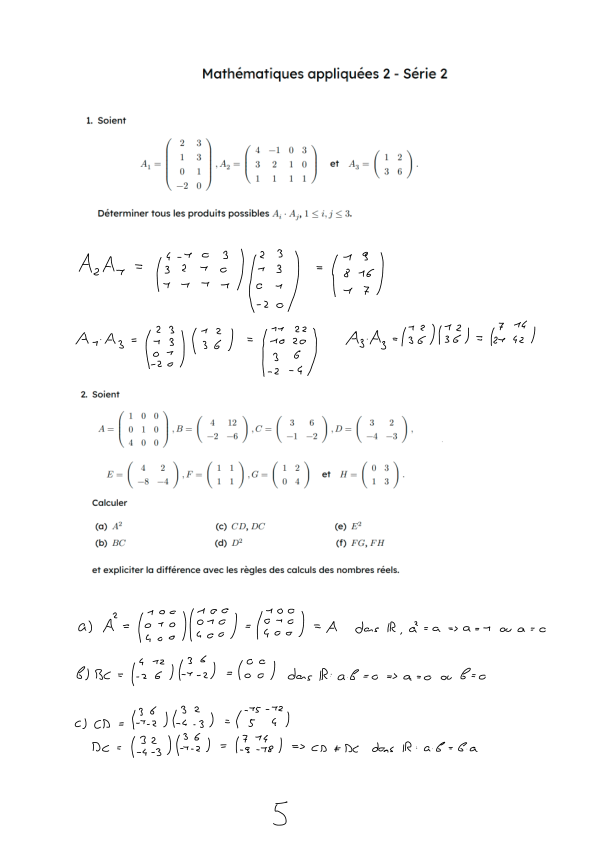 Mathématiques appliquées 2 - Série 2
1. Soient
A₁ = ( 2 3 ; 1 3 ; 0 1 ; −2 0 ), A₂ = ( 4 −1 0 3 ; 3 2 1 0 ; 1 1 1 1 ) et A₃ = ( 1 2 ; 3 6 ).
Déterminer tous les produits possibles Aᵢ · Aⱼ, 1 ≤ i, j ≤ 3.
A₂A₁ = ( 4 -1 0 3 ; 3 2 1 0 ; 1 1 1 1 ) ( 2 3 ; 1 3 ; 0 1 ; -2 0 ) = ( 1 9 ; 8 16 ; 1 7 )
A₁·A₃ = ( 2 3 ; 1 3 ; 0 1 ; -2 0 ) ( 1 2 ; 3 6 ) = ( 11 22 ; 10 20 ; 3 6 ; -2 -4 ) A₃·A₃ = ( 1 2 ; 3 6 ) ( 1 2 ; 3 6 ) = ( 7 14 ; 21 42 )
2. Soient
A = ( 1 0 0 ; 0 1 0 ; 4 0 0 ), B = ( 4 12 ; −2 −6 ), C = ( 3 6 ; −1 −2 ), D = ( 3 2 ; −4 −3 ),
E = ( 4 2 ; −8 −4 ), F = ( 1 1 ; 1 1 ), G = ( 1 2 ; 0 4 ) et H = ( 0 3 ; 1 3 ).
Calculer
(a) A² (c) CD, DC (e) E²
(b) BC (d) D² (f) FG, FH
et expliciter la différence avec les règles des calculs des nombres réels.
a) A² = ( 1 0 0 ; 0 1 0 ; 4 0 0 ) ( 1 0 0 ; 0 1 0 ; 4 0 0 ) = ( 1 0 0 ; 0 1 0 ; 4 0 0 ) = A dans ℝ, a² = a => a = 1 ou a = 0
b) BC = ( 4 12 ; -2 6 ) ( 3 6 ; -1 -2 ) = ( 0 0 ; 0 0 ) dans ℝ: a·b = 0 => a = 0 ou b = 0
c) CD = ( 3 6 ; -1 -2 ) ( 3 2 ; -4 -3 ) = ( -15 -12 ; 5 4 )
DC = ( 3 2 ; -4 -3 ) ( 3 6 ; -1 -2 ) = ( 7 14 ; -9 -18 ) => CD ≠ DC dans ℝ: a b = b a
5